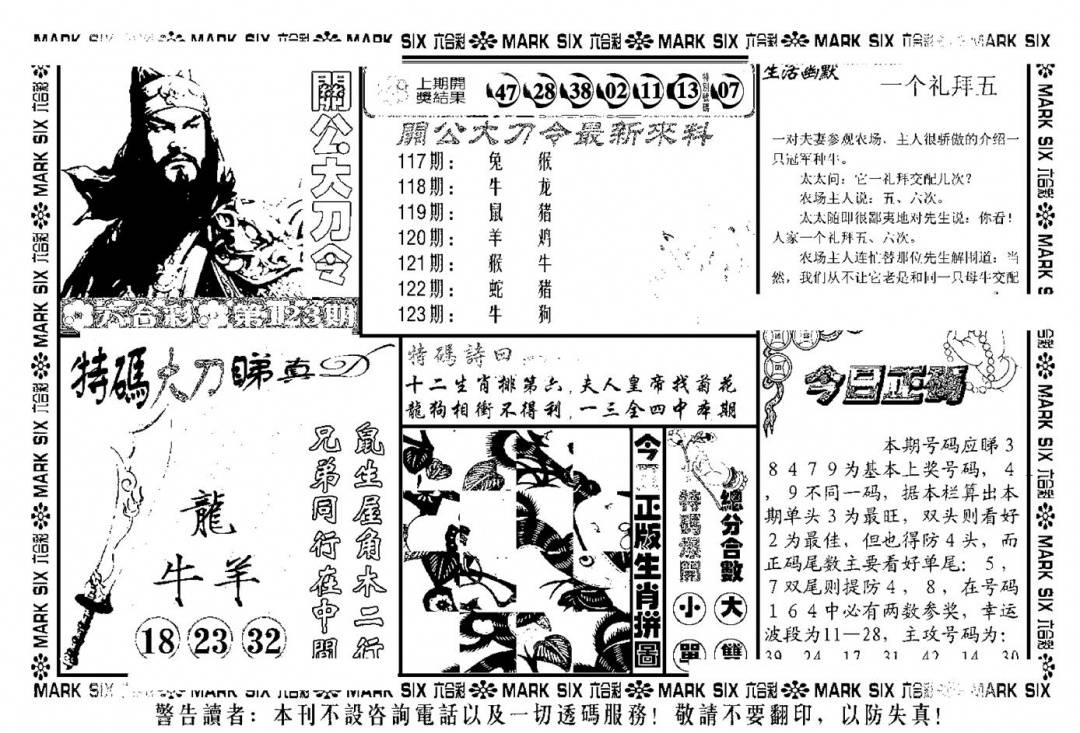 MARK SIX 六合彩 MARK SIX 六合彩 MARK SIX 六合彩 MARK SIX 六合彩 MARK SIX 六合彩 MARK SIX 六合彩 MARK SIX
關公大刀令
六合彩 第123期
上期開獎結果 47 28 38 02 11 13 特別號碼 07
關公大刀令最新來料
117期： 兔 猴
118期： 牛 龙
119期： 鼠 猪
120期： 羊 鸡
121期： 猴 牛
122期： 蛇 猪
123期： 牛 狗
生活幽默
一个礼拜五
一对夫妻参观农场、主人很骄傲的介绍一
只冠军种牛。
太太问：它一礼拜交配几次？
农场主人说：五、六次。
太太随即很鄙夷地对先生说：你看！
人家一个礼拜五、六次。
农场主人连忙替那位先生解围道：当
然，我们从不让它老是和同一只母牛交配
特碼大刀睇真
鼠生屋角木二行
兄弟同行在中間
龍
牛 羊
18 23 32
特碼詩曰
十二生肖排第六，夫人皇帝找菊花
龍狗相衝不得利，一三全四中本期
今日正版生肖拼圖
總分合數
大
雙
小
單
今日正碼
本期号码应睇3
8479为基本上奖号码，4
，9不同一码，据本栏算出本
期单头3为最旺，双头则看好
2为最佳，但也得防4头，而
正码尾数主要看好单尾：5，
7双尾则提防4，8，在号码
164中必有两数参奖，幸运
波段为11—28，主攻号码为：
39 24 17 31 42 14 30
MARK SIX 六合彩 MARK SIX 六合彩 MARK SIX 六合彩 MARK SIX 六合彩 MARK SIX 六合彩 MARK SIX 六合彩 MARK SIX
警告讀者：本刊不設咨詢電話以及一切透碼服務！敬請不要翻印，以防失真！